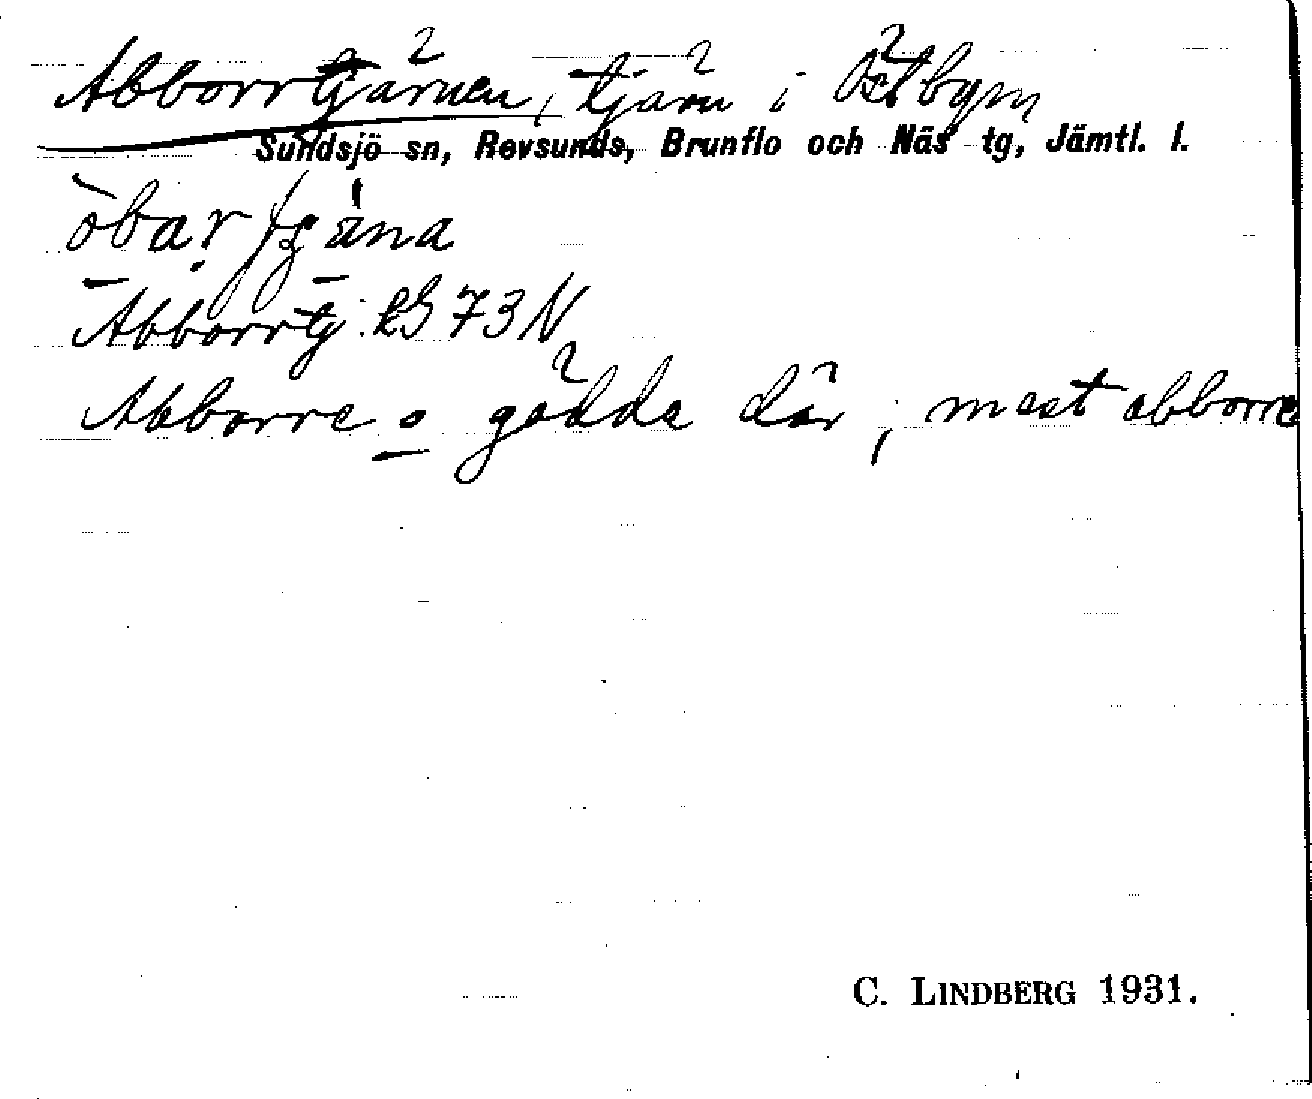 Abborrtjärnen, tjärn i Östbyn
Sundsjö sn, Revsunds, Brunflo och Näs tg, Jämtl. l.
Abborrtj. LS 73 N
Abborre o gädda där; mest abborre
C. LINDBERG 1931.